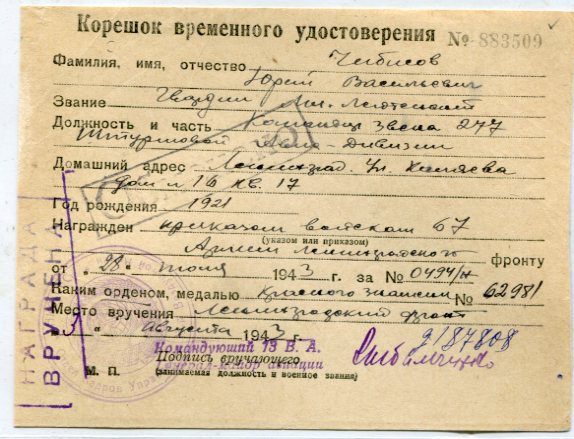 Корешок временного удостоверения № 883509
Фамилия, имя, отчество Чибисов
Юрий Васильевич
Звание Гвардии Мл. Лейтенант
Должность и часть Командир звена 277
Штурмовой Авиа-Дивизии
Домашний адрес Ленинград. Ул. Каляева
дом № 16 кв. 17
Год рождения 1921
Награжден приказом войскам 67
(указом или приказом)
Армии Ленинградского фронту
от „28“ июня 1943 г. за № 0494/н
Каким орденом, медалью Красного знамени № 62981
Место вручения Ленинградский фронт
„ “ Августа 1943 г.
2187808
Командующий 13 В. А.
Подпись вручающего
генерал-майор авиации
М. П. (занимаемая должность и военное звание)
НАГРАДА
ВРУЧЕНА